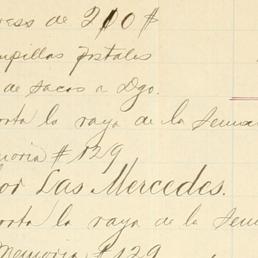 ress de 200 $
mpillas postales
de sacos a Dgo.
orta la raya de la Sema
emoria # 129
or Las Mercedes.
orta la raya de la Sem
Memoria # 129